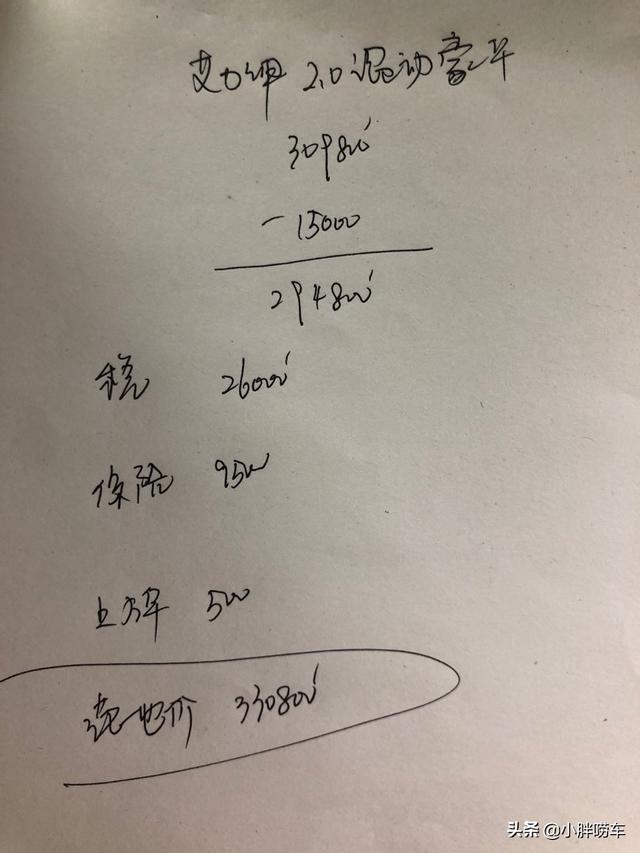 艾力绅 2.0混动豪华
309800
-15000
294800
税 26000
保险 9500
上牌 500
落地价 330800
头条 @小胖唠车